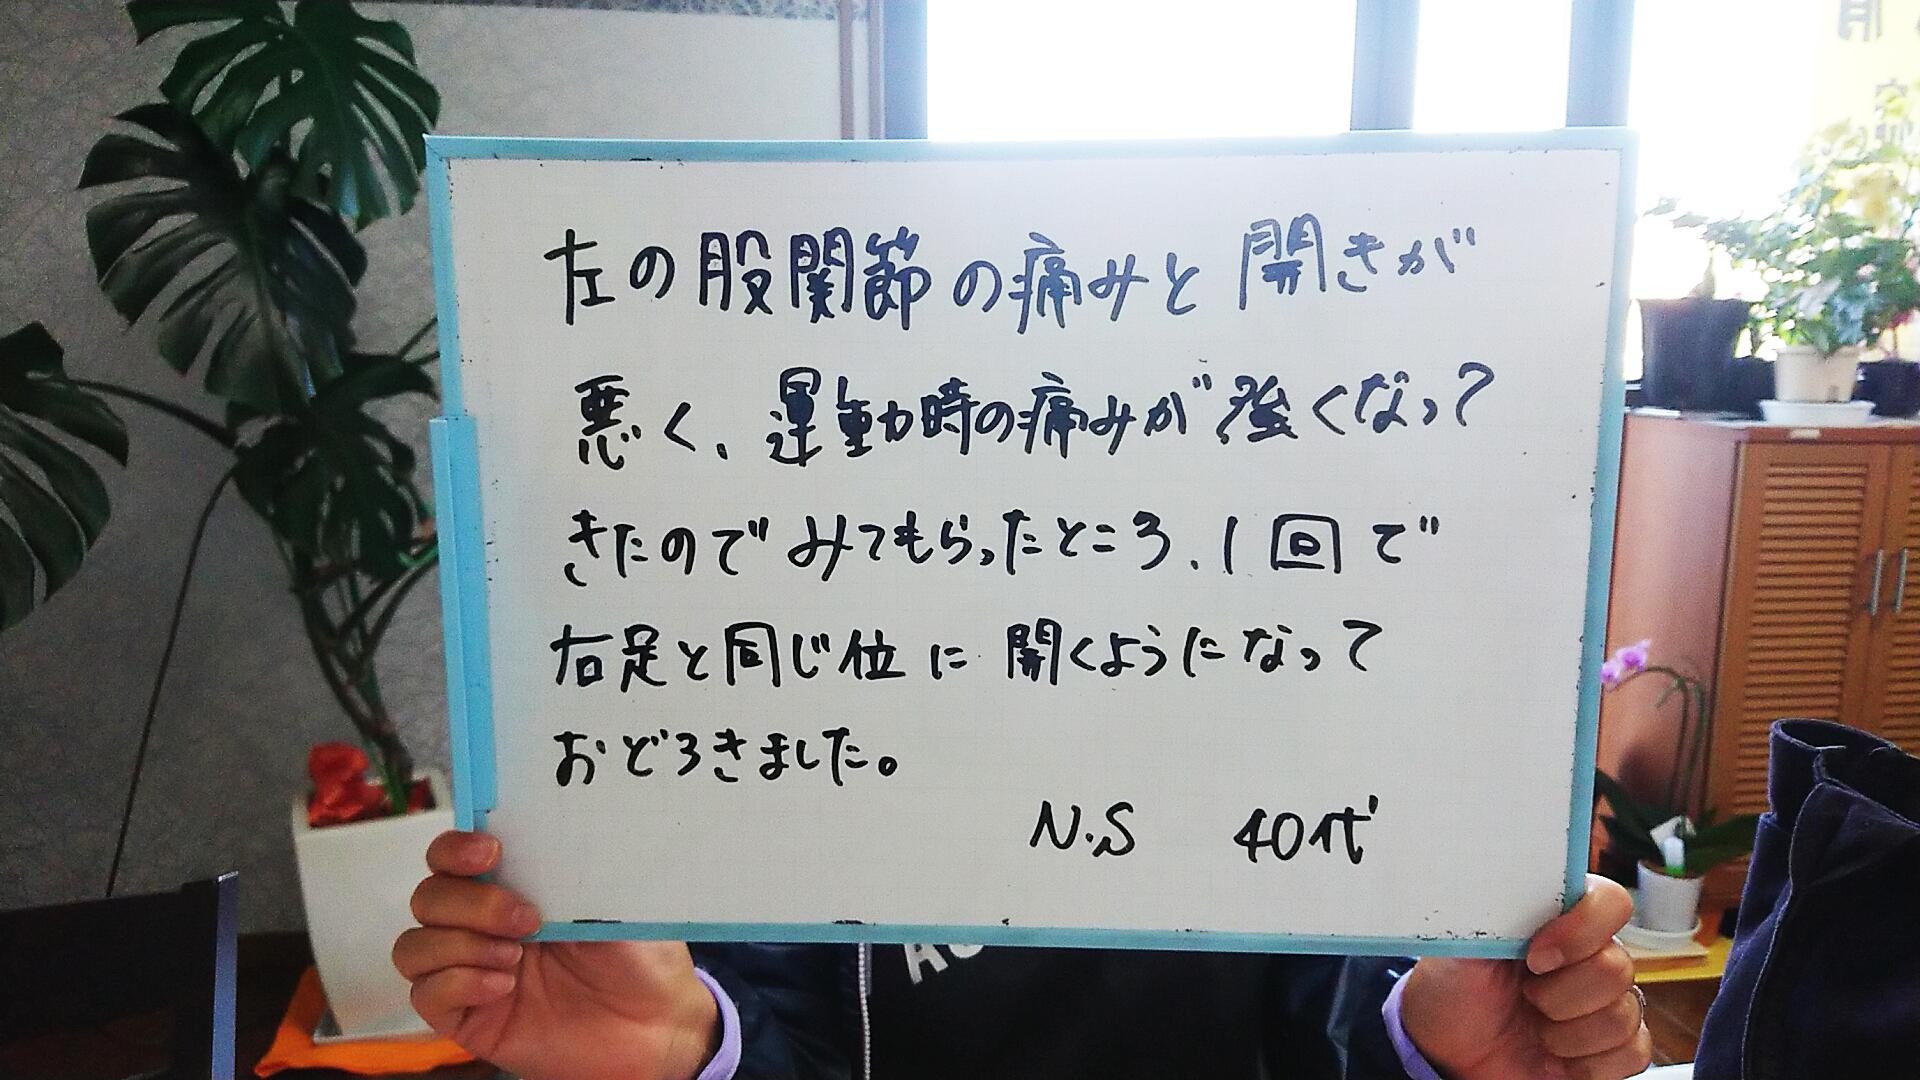 左の股関節の痛みと開きが
悪く、運動時の痛みが強くなって
きたのでみてもらったところ、1回で
右足と同じ位に開くようになって
おどろきました。
N.S 40代